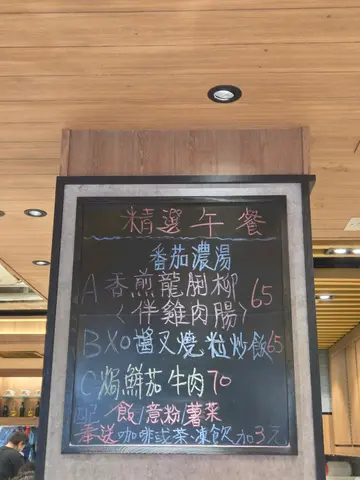 精選午餐
番茄濃湯
A香煎龍脷柳 65
〈伴雞肉腸〉
BXO醬叉燒粒炒飯65
C焗鮮茄牛肉70
配 飯/意粉/薯菜
奉送咖啡或茶、凍飲加3元